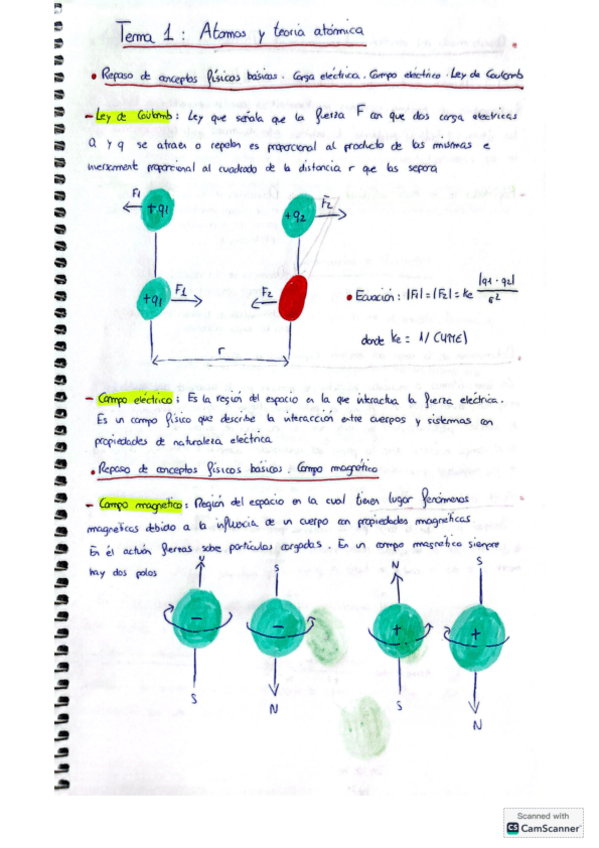 Tema 1: Atomos y teoria atómica
• Repaso de conceptos físicos básicos. Carga eléctrica. Campo eléctrico. Ley de Coulomb
- Ley de Coulomb: Ley que señala que la fuerza F con que dos carga electricas
Q y q se atraen o repelen es proporcional al producto de las mismas e
inversamente proporcional al cuadrado de la distancia r que las separa
F1
+q1
F2
+q2
+q1
F1
F2
r
• Ecuación: |F1|=|F2|= Ke |q1·q2|
donde Ke = 1/(4πε)
- Campo eléctrico: Es la región del espacio en la que interactua la fuerza eléctrica.
Es un campo físico que describe la interacción entre cuerpos y sistemas con
propiedades de naturaleza eléctrica
• Repaso de conceptos físicos básicos. Campo magnético
- Campo magnético: Región del espacio en la cual tienen lugar fenómenos
magneticos debido a la influecia de un cuerpo con propiedades magneticas
En él actúan fuerzas sobre partículas cargadas. En un campo magnético siempre
hay dos polos
N
S
N
S
-
-
+
+
S
N
S
N
Scanned with
CS CamScanner